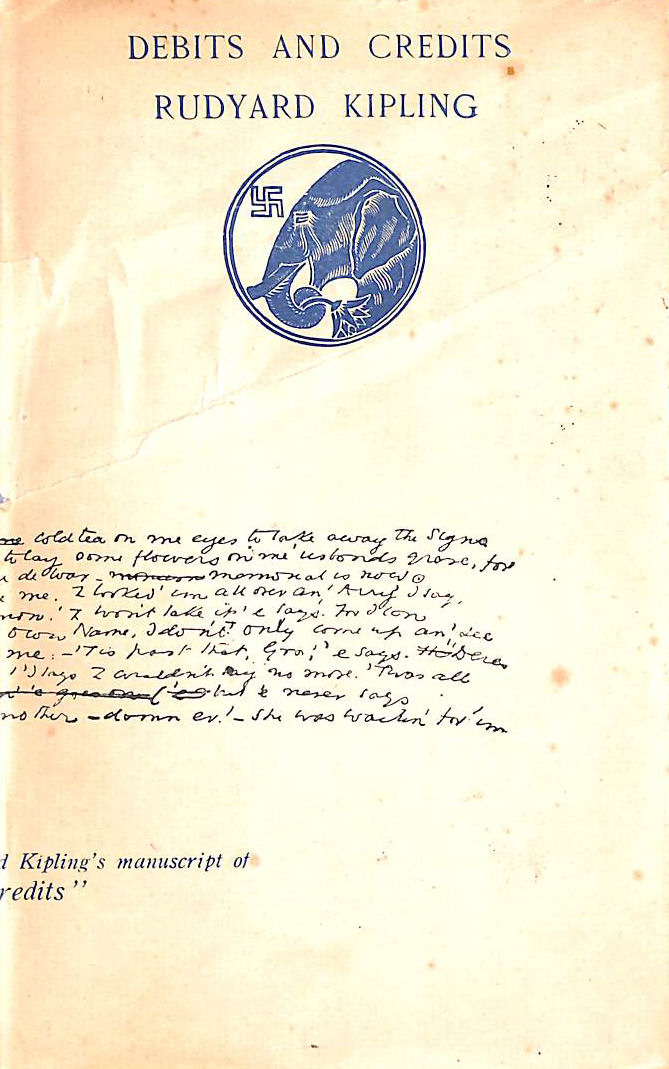 DEBITS AND CREDITS
RUDYARD KIPLING
cold tea on me eyes to take away the signs
to lay some flowers on me 'usbonds grave, for
de War memorial is now
me. I looked 'im all over an' 'Arry' I say,
I won't take it' 'e says. For I can
own Name, I don't only come up an' see
me:-'Tis past that, Gra,' 'e says.
I says I couldn't say no more. 'Twas all
but 'e never says
-damn 'er!- She was waitin' for 'im
d Kipling's manuscript of
redits"